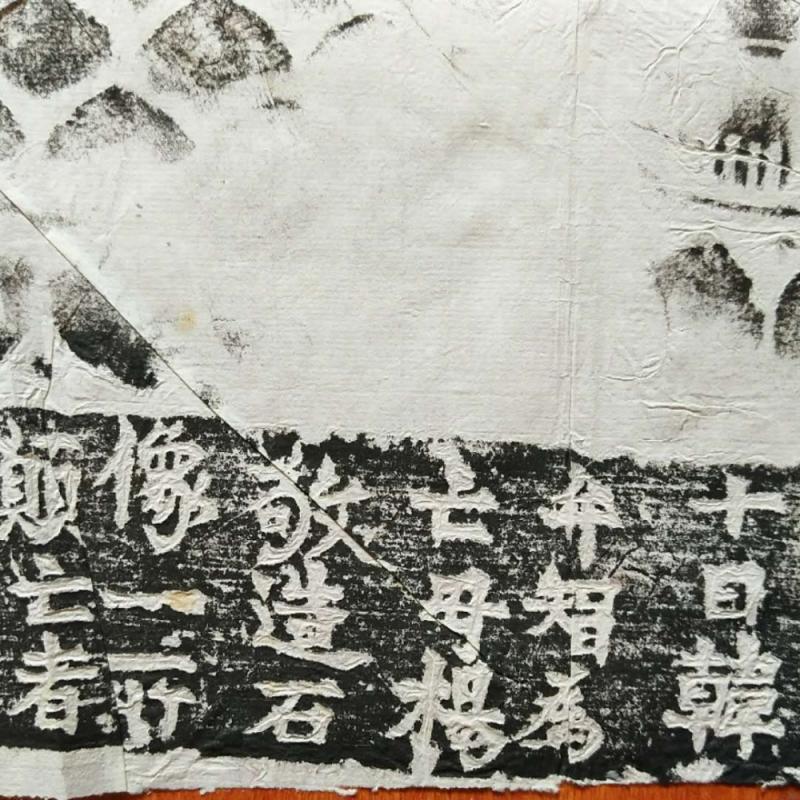 十日韓
弁智為
亡母楊
敬造石
像一
願亡者